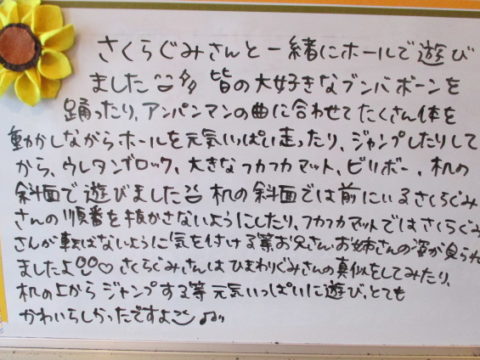 さくらぐみさんと一緒にホールで遊び
ました 皆の大好きなブンバボーンを
踊ったり、アンパンマンの曲に合わせてたくさん体を
動かしながらホールを元気いっぱい走ったり、ジャンプしたりして
から、ウレタンブロック、大きなフカフカマット、ビリボー、机の
斜面で遊びました 机の斜面では前にいるさくらぐみ
さんの順番を抜かさないようにしたり、フカフカマットではさくらぐみ
さんが転ばないように気を付ける等お兄さん・お姉さんの姿が見られ
ましたよ♡さくらぐみさんはひまわりぐみさんの真似をしてみたり、
机の上からジャンプする等元気いっぱいに遊び、とても
かわいらしかったですよ♪